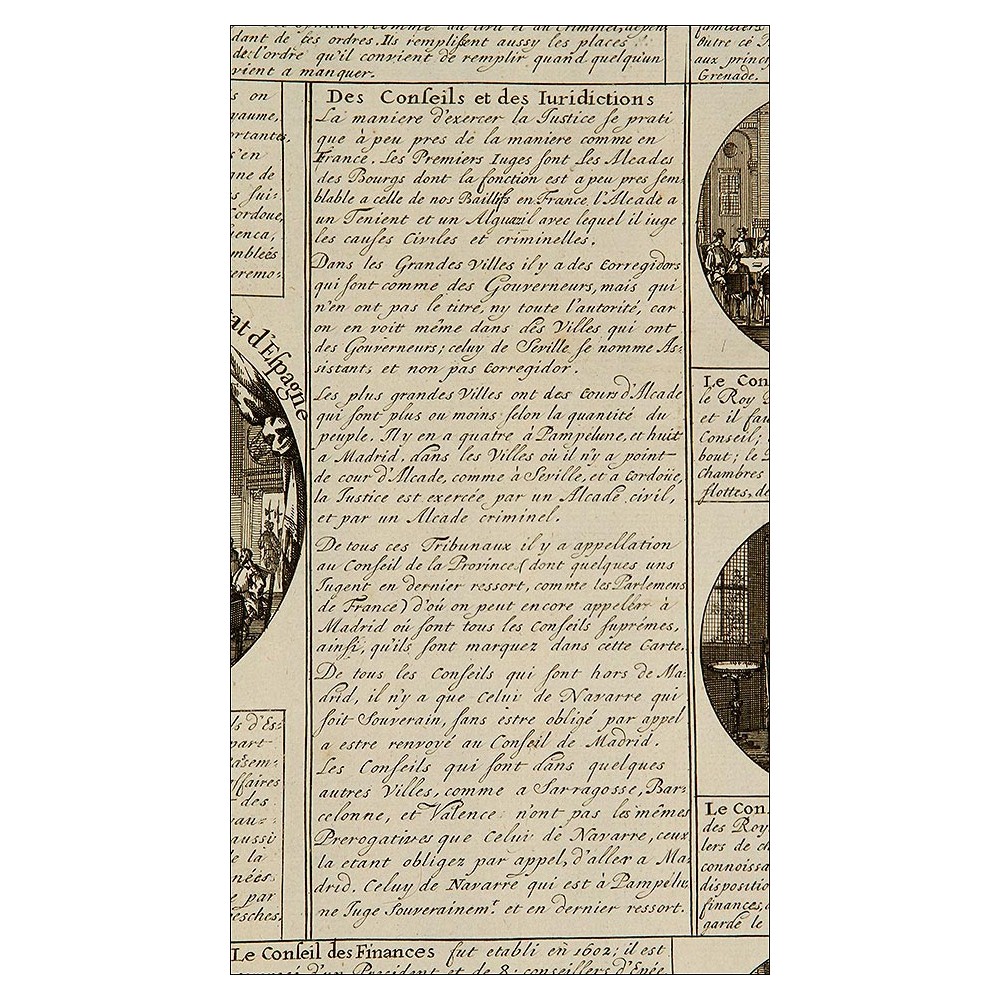 dant de ces ordres. Ils remplissent aussy les places
de l'ordre qu'il convient de remplir quand quelqu'un
vient a manquer.
Outre cé
aux princ
Grenade.
s on
yaume,
ortantes,
s'en
gne de
s sui-
Cordoue,
uenca,
mbleés
eremo-
at d'Espagne
Des Conseils et des Iuridictions
La maniere d'exercer la Justice se prati
que à peu pres de la maniere comme en
France. Les Premiers Iuges sont Les Alcades
des Bourgs dont la fonction est a peu pres sem-
blable a celle de nos Baillifs en France, l'Alcade a
un Tenient et un Alguazil avec lequel il iuge
les causes Civiles et criminelles.
Dans les Grandes Villes il y a des Corregidors
qui sont comme des Gouverneurs, mais qui
n'en ont pas le titre, ny toute l'autorité, car
on en voit même dans des Villes qui ont
des Gouverneurs; celuy de Seville se nomme As-
sistant, et non pas Corregidor.
Les plus grandes Villes ont des Cours d'Alcade
qui sont plus ou moins selon la quantité du
peuple. Il y en a quatre à Pampelune, et huit
a Madrid. dans les Villes où il n'y a point
de cour d'Alcade, comme à Seville, et a Cordoüe,
la Justice est exercée par un Alcade civil,
et par un Alcade criminel.
De tous ces Tribunaux il y a appellation
au Conseil de la Province (dont quelques uns
Jugent en dernier ressort, comme les Parlemens
de France) d'où on peut encore appeller à
Madrid où sont tous les Conseils suprémes,
ainsi, qu'ils sont marquez dans cette Carte.
De tous les Conseils qui sont hors de Ma-
drid, il n'y a que Celui de Navarre qui
soit Souverain, sans estre obligé par appel
a estre renvoyé au Conseil de Madrid.
Les Conseils qui sont dans quelques
autres Villes, comme a Sarragosse, Bar-
celonne, et Valence n'ont pas les mêmes
Prerogatives que Celui de Navarre, ceux
la etant obligez par appel, d'aller a Ma-
drid. Celuy de Navarre qui est à Pampelu-
ne Juge Souverainem.t et en dernier ressort.
Le Con
le Roy
et il fau
Conseil;
bout; le
chambres
flottes, de
ls d'Es-
part
assem-
ffaires
des
aussi
e la
nées
e par
esches,
Le Con
des Roy
lers de ch
connoissa
dispositio
finances,
garde le
Le Conseil des Finances fut etabli en 1602; il est
d'un President et de 8 conseillers d'Epée